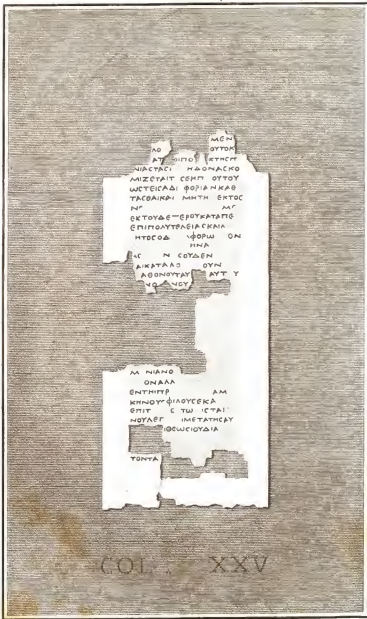 ΜΕΝ
ΛΟ ΟΥΤΟΚ
ΑΤ ΟΙΠΟ ΚΤΗϹΠ
ΝΙΑϹΤΑϹΙ ΗΔΟΝΑϹΚΟ
ΜΙΖΕΤΑΙΤ ϹΕΗΠ ΟΥΤΟΥ
ΩϹΤΕΙϹΑΔΙ ΦΟΡΙΑΝΚΑΘ
ΤΑϹΘΑΙΚΑΙ ΜΗΤΗ ΕΚΤΟϹ
ΕΚΤΟΥΔΕ ΕΡΟΥΚΑΤΑΠΕ
ΕΠΙΠΟΛΥΤΕΛΕΙΑϹΚΑΙΑ
ΗΤΟϹΟΔ ΦΟΡΩ ΟΝ
ΗΝΑ
Ν ϹΟΥΔΕΝ
ΑΙΚΑΤΑΛΟ ΟΥΝ
ΑΘΟΝΟΥΤΑΥ ΑΥΤ Υ
ΝΟΥ
Μ ΝΙΑΝΟ
ΟΝΑΛΛ
ΕΝΤΗΙΠΡ ΑΜ
ΚΗΝΟΥ ΦΙΛΟΥϹΕΚΑ
ΕΠΙΤ Ϲ ΤΩ ΙϹΤΑΙ
ΝΟΥΛΕΓ ΙΜΕΤΑΤΗϹΑΥ
ΙΘΕΩϹΙΟΥΔΙΑ
ΤΟΝΤΑ
COL. XXV